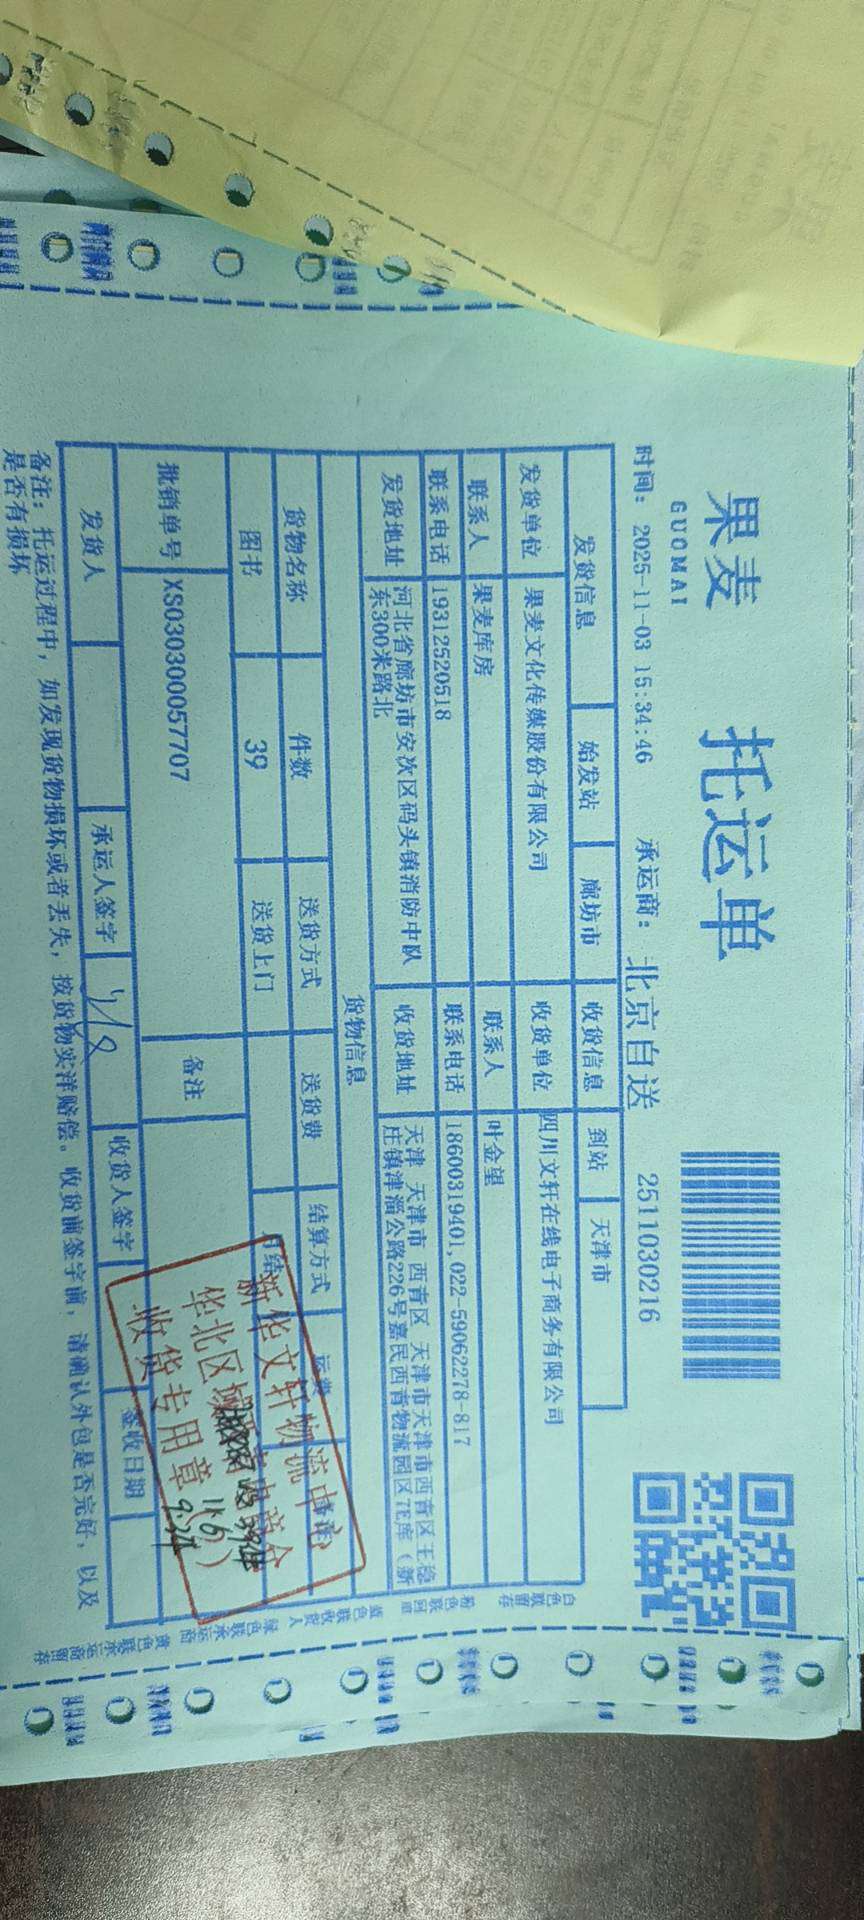 果麦
GUOMAI
托运单
时间: 2025-11-03 15:34:46 承运商: 北京自送 2511030216
发货信息 始发站 廊坊市 收货信息 到站 天津市
发货单位 果麦文化传媒股份有限公司 收货单位 四川文轩在线电子商务有限公司
联系人 果麦库房 联系人 叶金望
联系电话 19312520518 联系电话 18600319401,022-59062278-817
发货地址 河北省廊坊市安次区码头镇消防中队东300米路北 收货地址 天津 天津市 西青区 天津市天津市西青区王稳庄镇津淄公路226号嘉民西青物流园区7E库(新
货物信息
货物名称 件数 送货方式 送货费 结算方式 运费
图书 39 送货上门 月结
批销单号 XS030300057707 备注
发货人 承运人签字 收货人签字 签收日期
备注: 托运过程中, 如发现货物损坏或者丢失, 按货物实洋赔偿。收货前签字前, 请确认外包是否完好, 以及
是否有损坏
新华文轩物流中心
华北区域
收货专用章
白色联留存 粉色联回单 蓝色联收货人 绿色联承运商 黄色联承运商留存